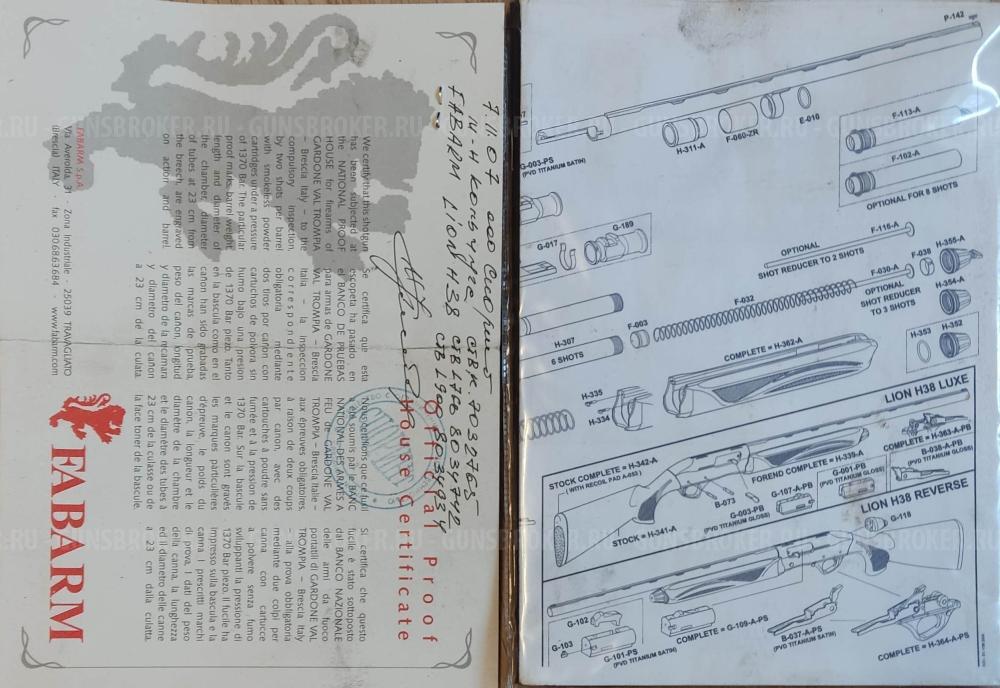 FABARM
Official Proof
House Certificate
We certify that this shotgun
has been subjected at
the NATIONAL PROOF
HOUSE for firearms of
GARDONE VAL TROMPIA
– Brescia Italy – to the
compulsory inspection,
by two shots per barrel
with smokeless powder
cartridges under a pressure
of 1370 Bar. The particular
proof marks, barrel weight,
length and diameter of
the chamber, diameter
of tubes at 23 cm from
the breech, are engraved
on action and barrel.
Se certifica que esta
escopeta ha pasado en
el BANCO DE PRUEBAS
para armas de GARDONE
VAL TROMPIA – Brescia
Italia – la inspeccion
correspondiente
obligatoria mediante
dos tiros por cañon con
cartuchos de polvora sin
humo bajo una presion
de 1370 Bar piezo. Tanto
en la bascula como en el
cañon han sido grabadas
las marcas de prueba,
peso del cañon, longitud
y diametro de la recamara
y diametro del cañon
a 23 cm de la culata.
Nous certifions que ce fusil
a été soumis par le BANC
NATIONAL DES ARMES A
FEU de GARDONE VAL
TROMPIA – Brescia Italie –
aux épreuves obligatoires,
à raison de deux coups
par canon, avec des
cartouches à poudre sans
fumée et à la pression de
1370 Bar. Sur la bascule
et le canon sont gravés
les marques particulières
d'épreuve, le poids du
canon, la longueur et le
diamètre de la chambre
et le diamètre des tubes à
23 cm de la culasse ou de
la face toner de la bascule.
Si certifica che questo
fucile è stato sottoposto
dal BANCO NAZIONALE
delle armi da fuoco
portatili di GARDONE VAL
TROMPIA – Brescia Italy
– alla prova obbligatoria
mediante due colpi per
canna con cartucce
a polvere senza fumo
sviluppanti la pressione di
1370 Bar piezo. Il fucile ha
impresso sulla bascula e la
canna i prescritti marchi
di prova, i dati del peso
della canna, la lunghezza
ed il diametro delle canne
a 23 cm dalla culatta.
FABARM S.p.A.
Via Averolda, 31 - Zona Industriale - 25039 TRAVAGLIATO
(Brescia) ITALY - fax 0306863684 - www.fabarm.com
7.11.07
FABARM LION H38
P-142
F-113-A
F-102-A
OPTIONAL FOR 8 SHOTS
E-010
F-060-ZR
H-311-A
G-003-PS
(PVD TITANIUM SATIN)
G-189
G-017
F-116-A
OPTIONAL
SHOT REDUCER TO 2 SHOTS
H-355-A
F-036
F-030-A
OPTIONAL
SHOT REDUCER
TO 3 SHOTS
H-354-A
F-032
F-003
H-307
6 SHOTS
H-353
H-352
COMPLETE = H-362-A
H-335
H-334
LION H38 LUXE
H-363-A-PB
B-038-A-PB
(PVD TITANIUM GLOSS)
STOCK COMPLETE = H-342-A
(WITH RECOIL PAD A-053)
FOREND COMPLETE = H-339-A
G-001-PB
(PVD TITANIUM GLOSS)
G-107-A-PB
B-073
G-003-PB
(PVD TITANIUM GLOSS)
STOCK = H-341-A
LION H38 REVERSE
G-118
G-102
G-103
G-101-PS
(PVD TITANIUM SATIN)
COMPLETE = G-109-A-PS
B-037-A-PS
(PVD TITANIUM SATIN)
COMPLETE = H-364-A-PS
GUNSBROKER.RU